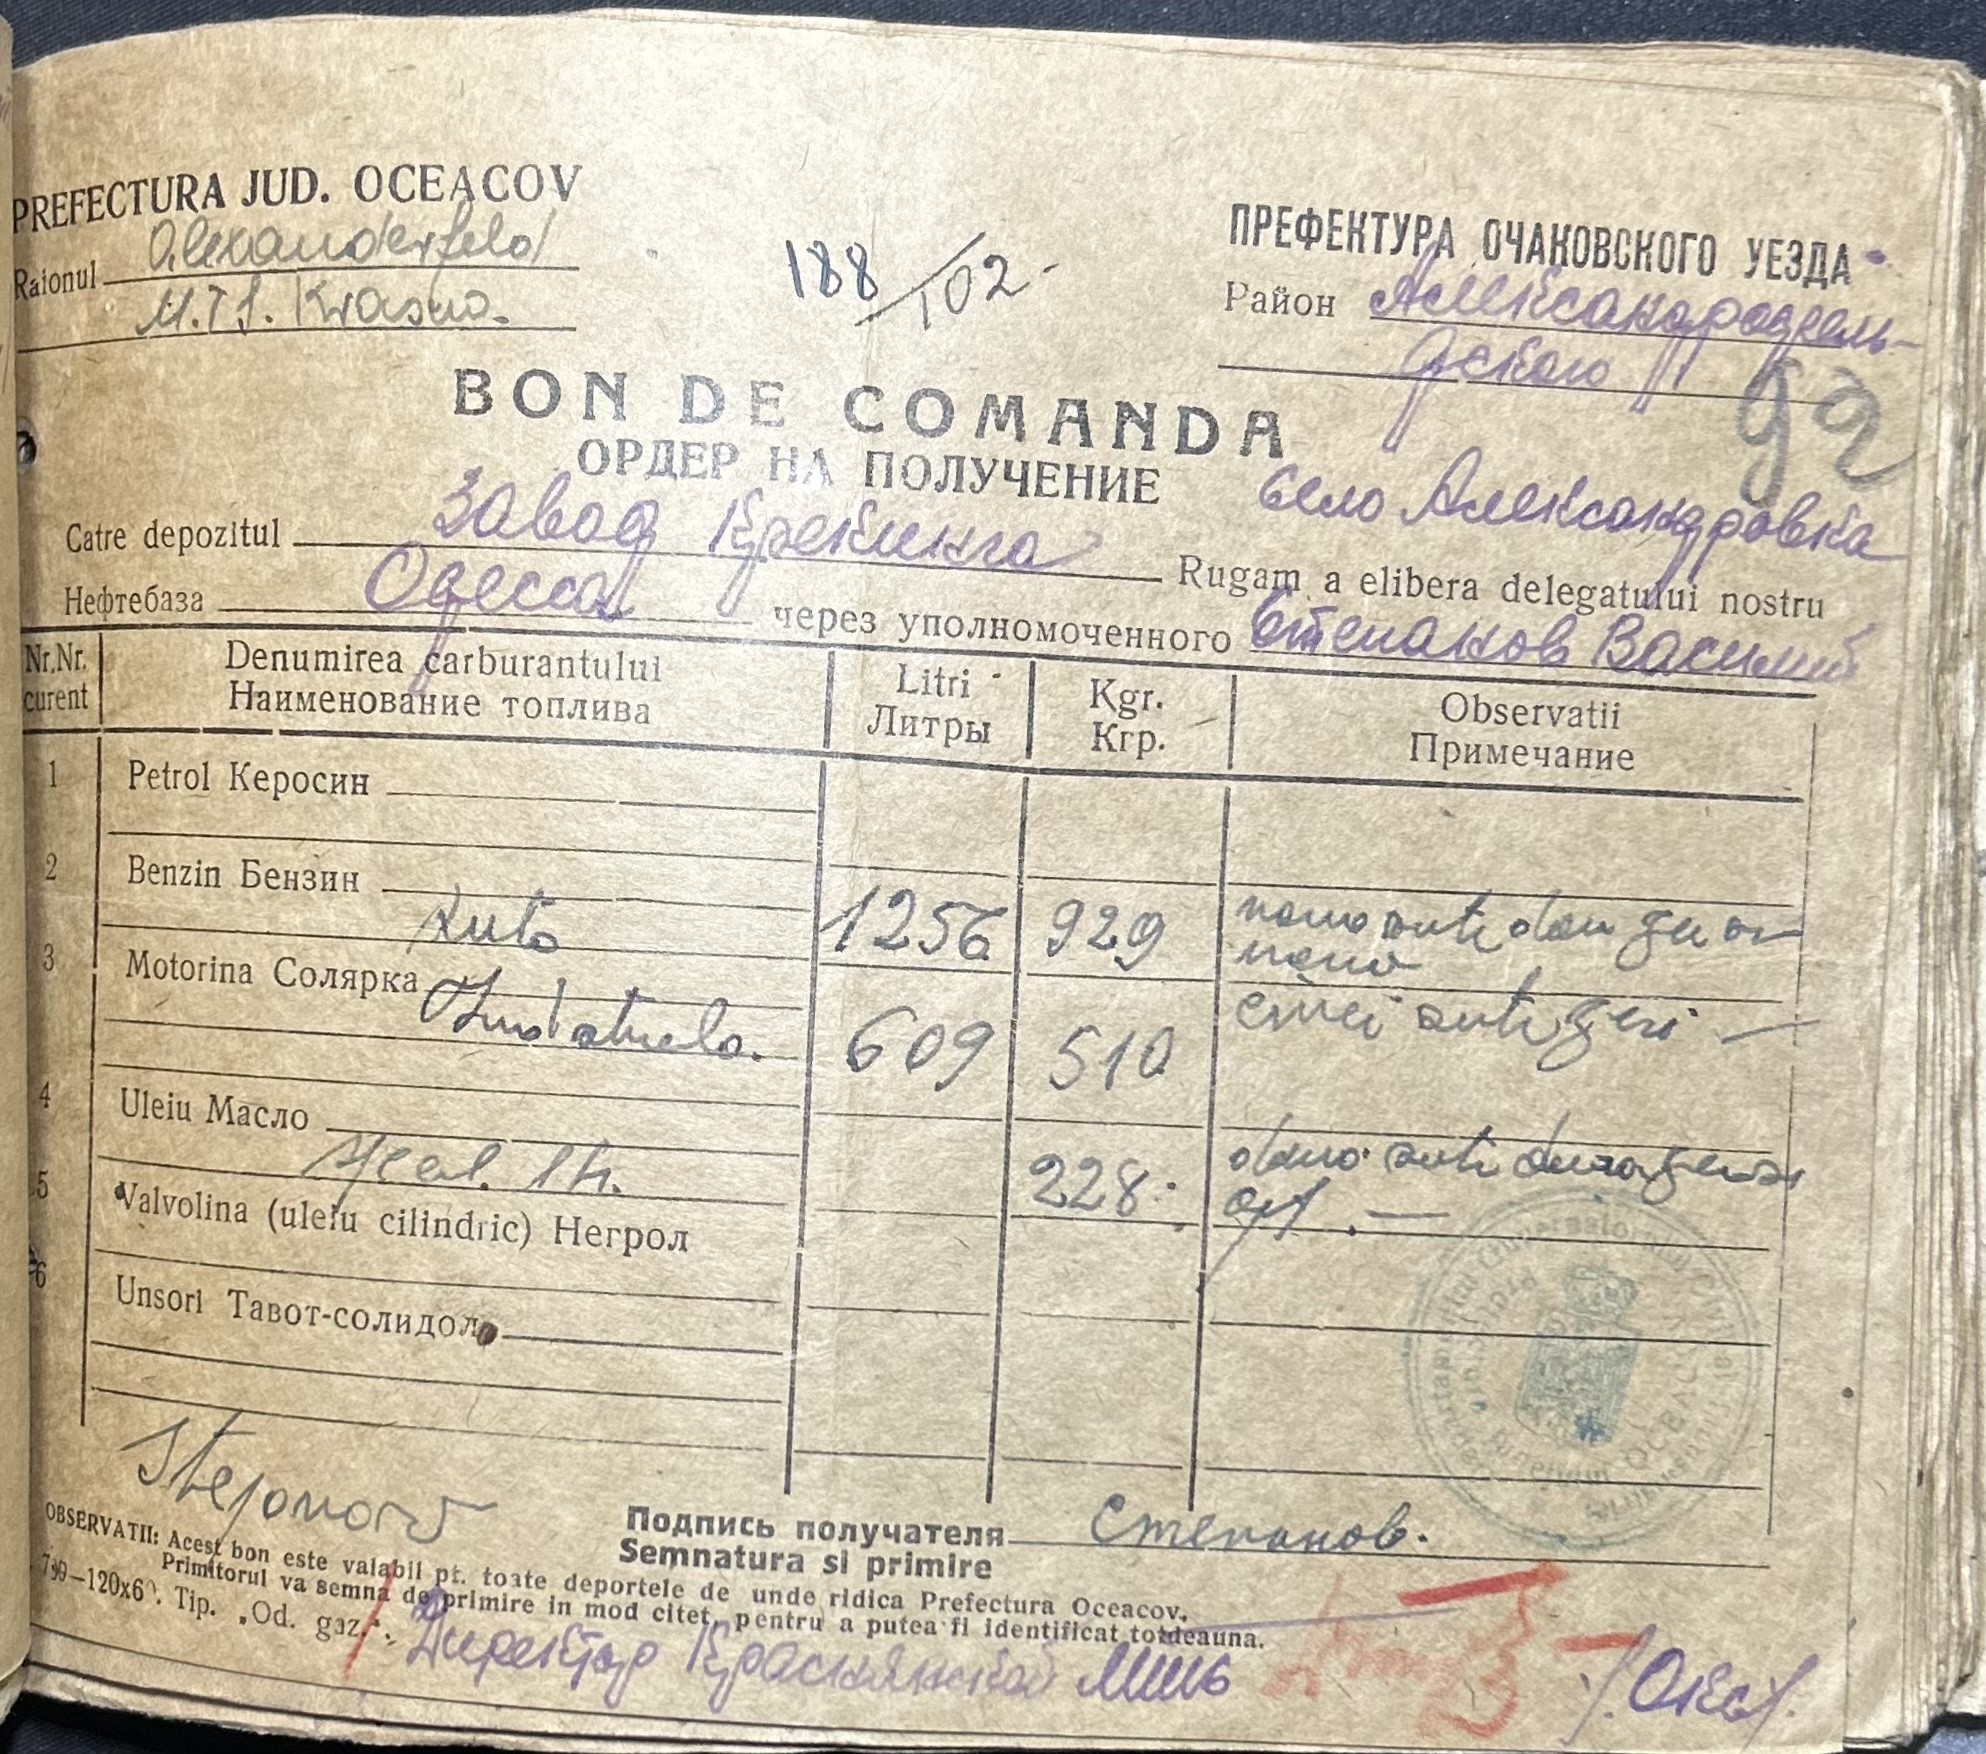 PREFECTURA JUD. OCEACOV
Raionul Alexanderfeld
M.T.S. Krasna.
188/102-
ПРЕФЕКТУРА ОЧАКОВСКОГО УЕЗДА
Район Александрофель-
дского
92
BON DE COMANDA
ОРДЕР НА ПОЛУЧЕНИЕ
село Александровка
Catre depozitul Завод Крекинга Rugam a elibera delegatului nostru
Нефтебаза Одесса через уполномоченного Степанов Василий
Nr.Nr. curent Denumirea carburantului Litri Kgr. Observatii
Наименование топлива Литры Кгр. Примечание
1 Petrol Керосин
2 Benzin Бензин
Auto 1256 929 noua sute
3 Motorina Солярка
609 510 cinci sute zeci —
4 Uleiu Масло
228. doua sute douazeci si
opt. —
5 Valvolina (uleiu cilindric) Негрол
6 Unsori Тавот-солидол
Stepanov
Подпись получателя Степанов.
Semnatura si primire
OBSERVATII: Acest bon este valabil pt. toate deportele de unde ridica Prefectura Oceacov.
Primitorul va semna de primire in mod citet, pentru a putea fi identificat totdeauna.
799—120x60. Tip. „Od. gaz."
Директор Краснянской